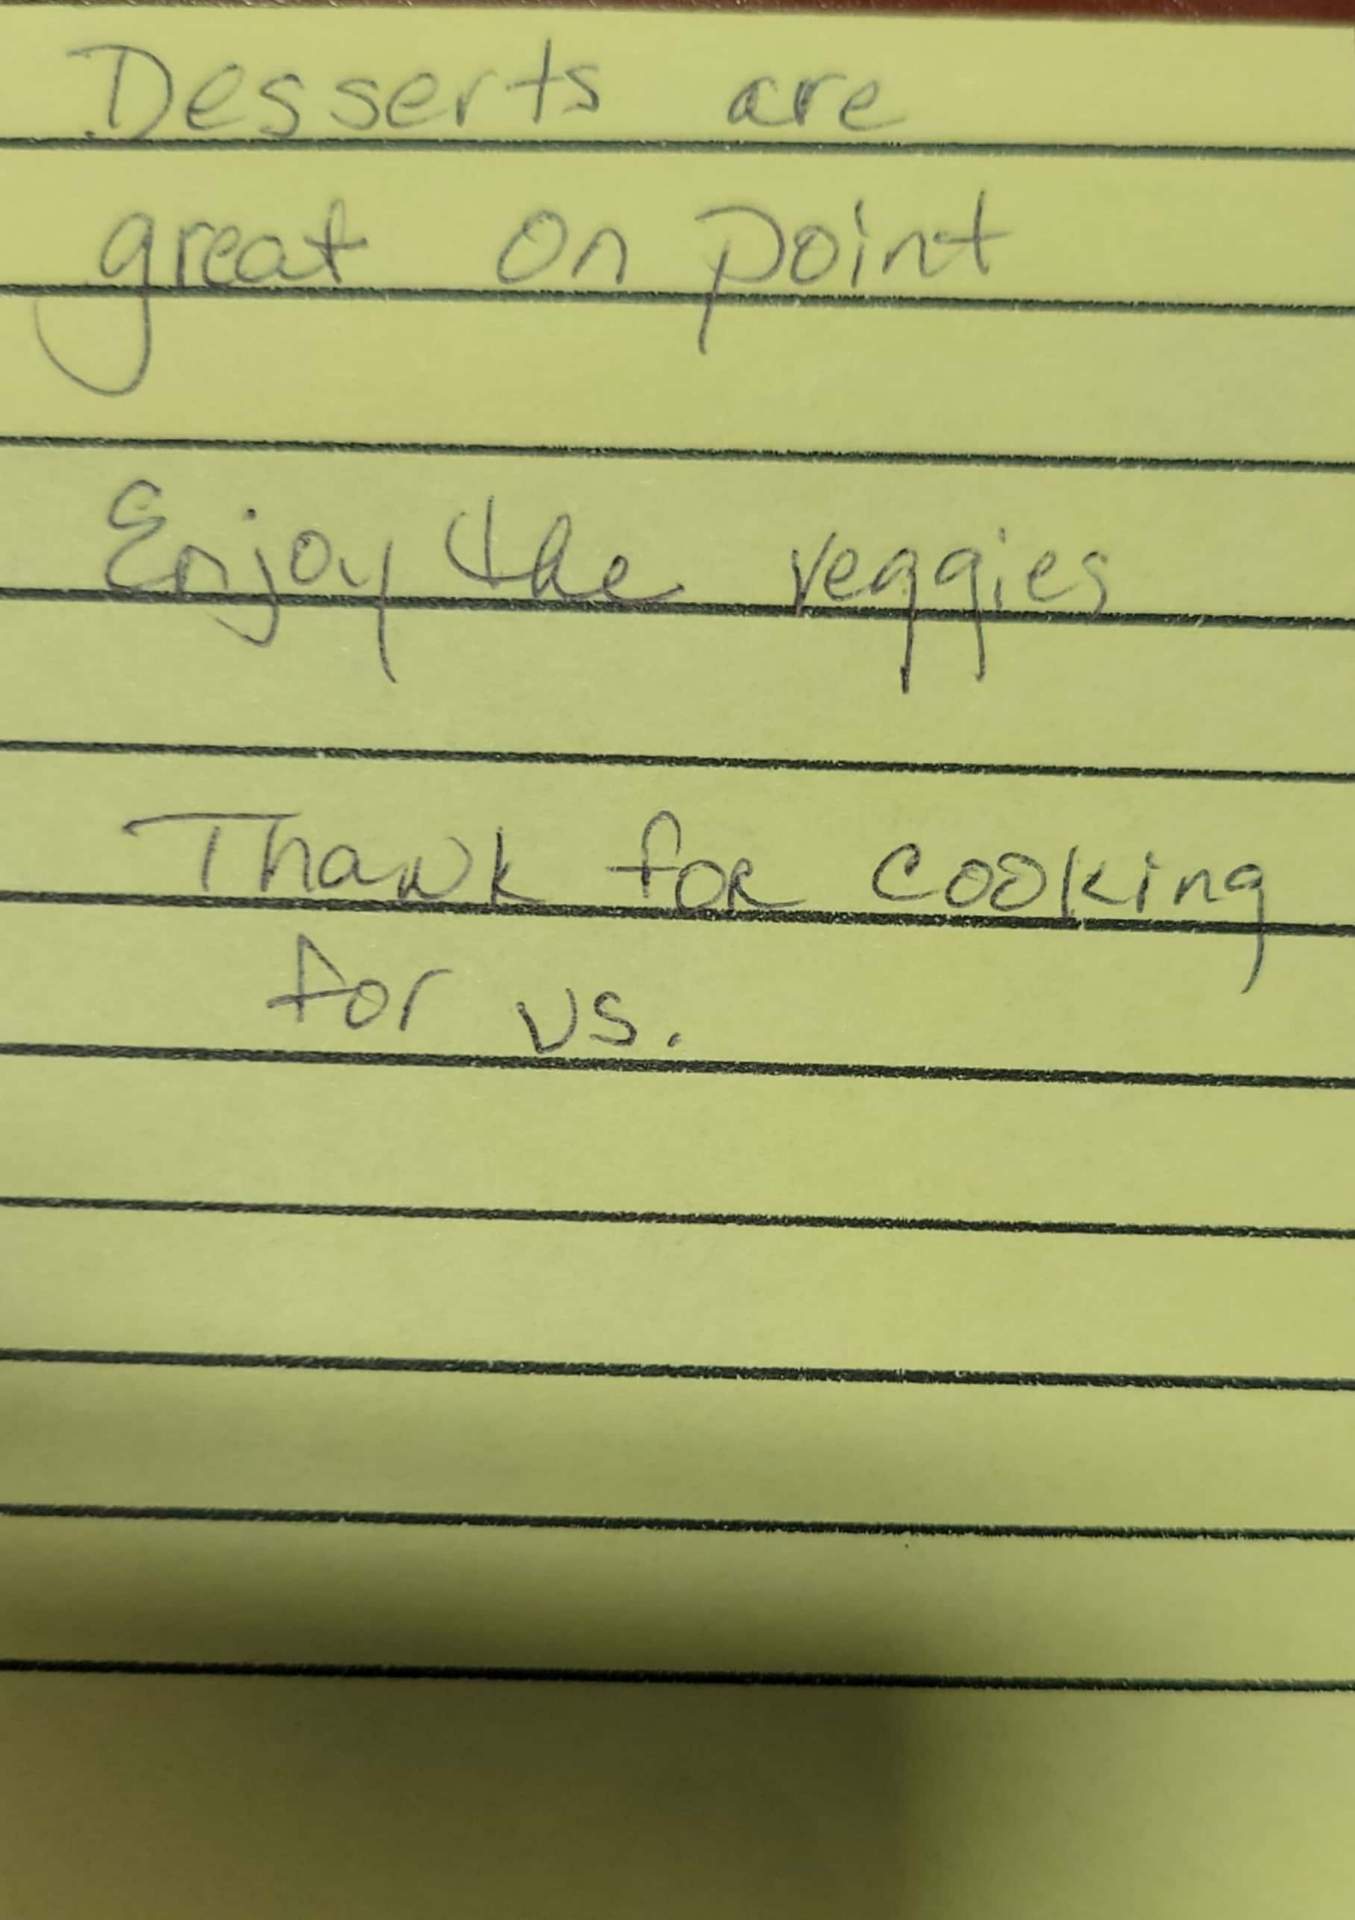 Desserts are
great on point
Enjoy the veggies
Thank for cooking
for us.